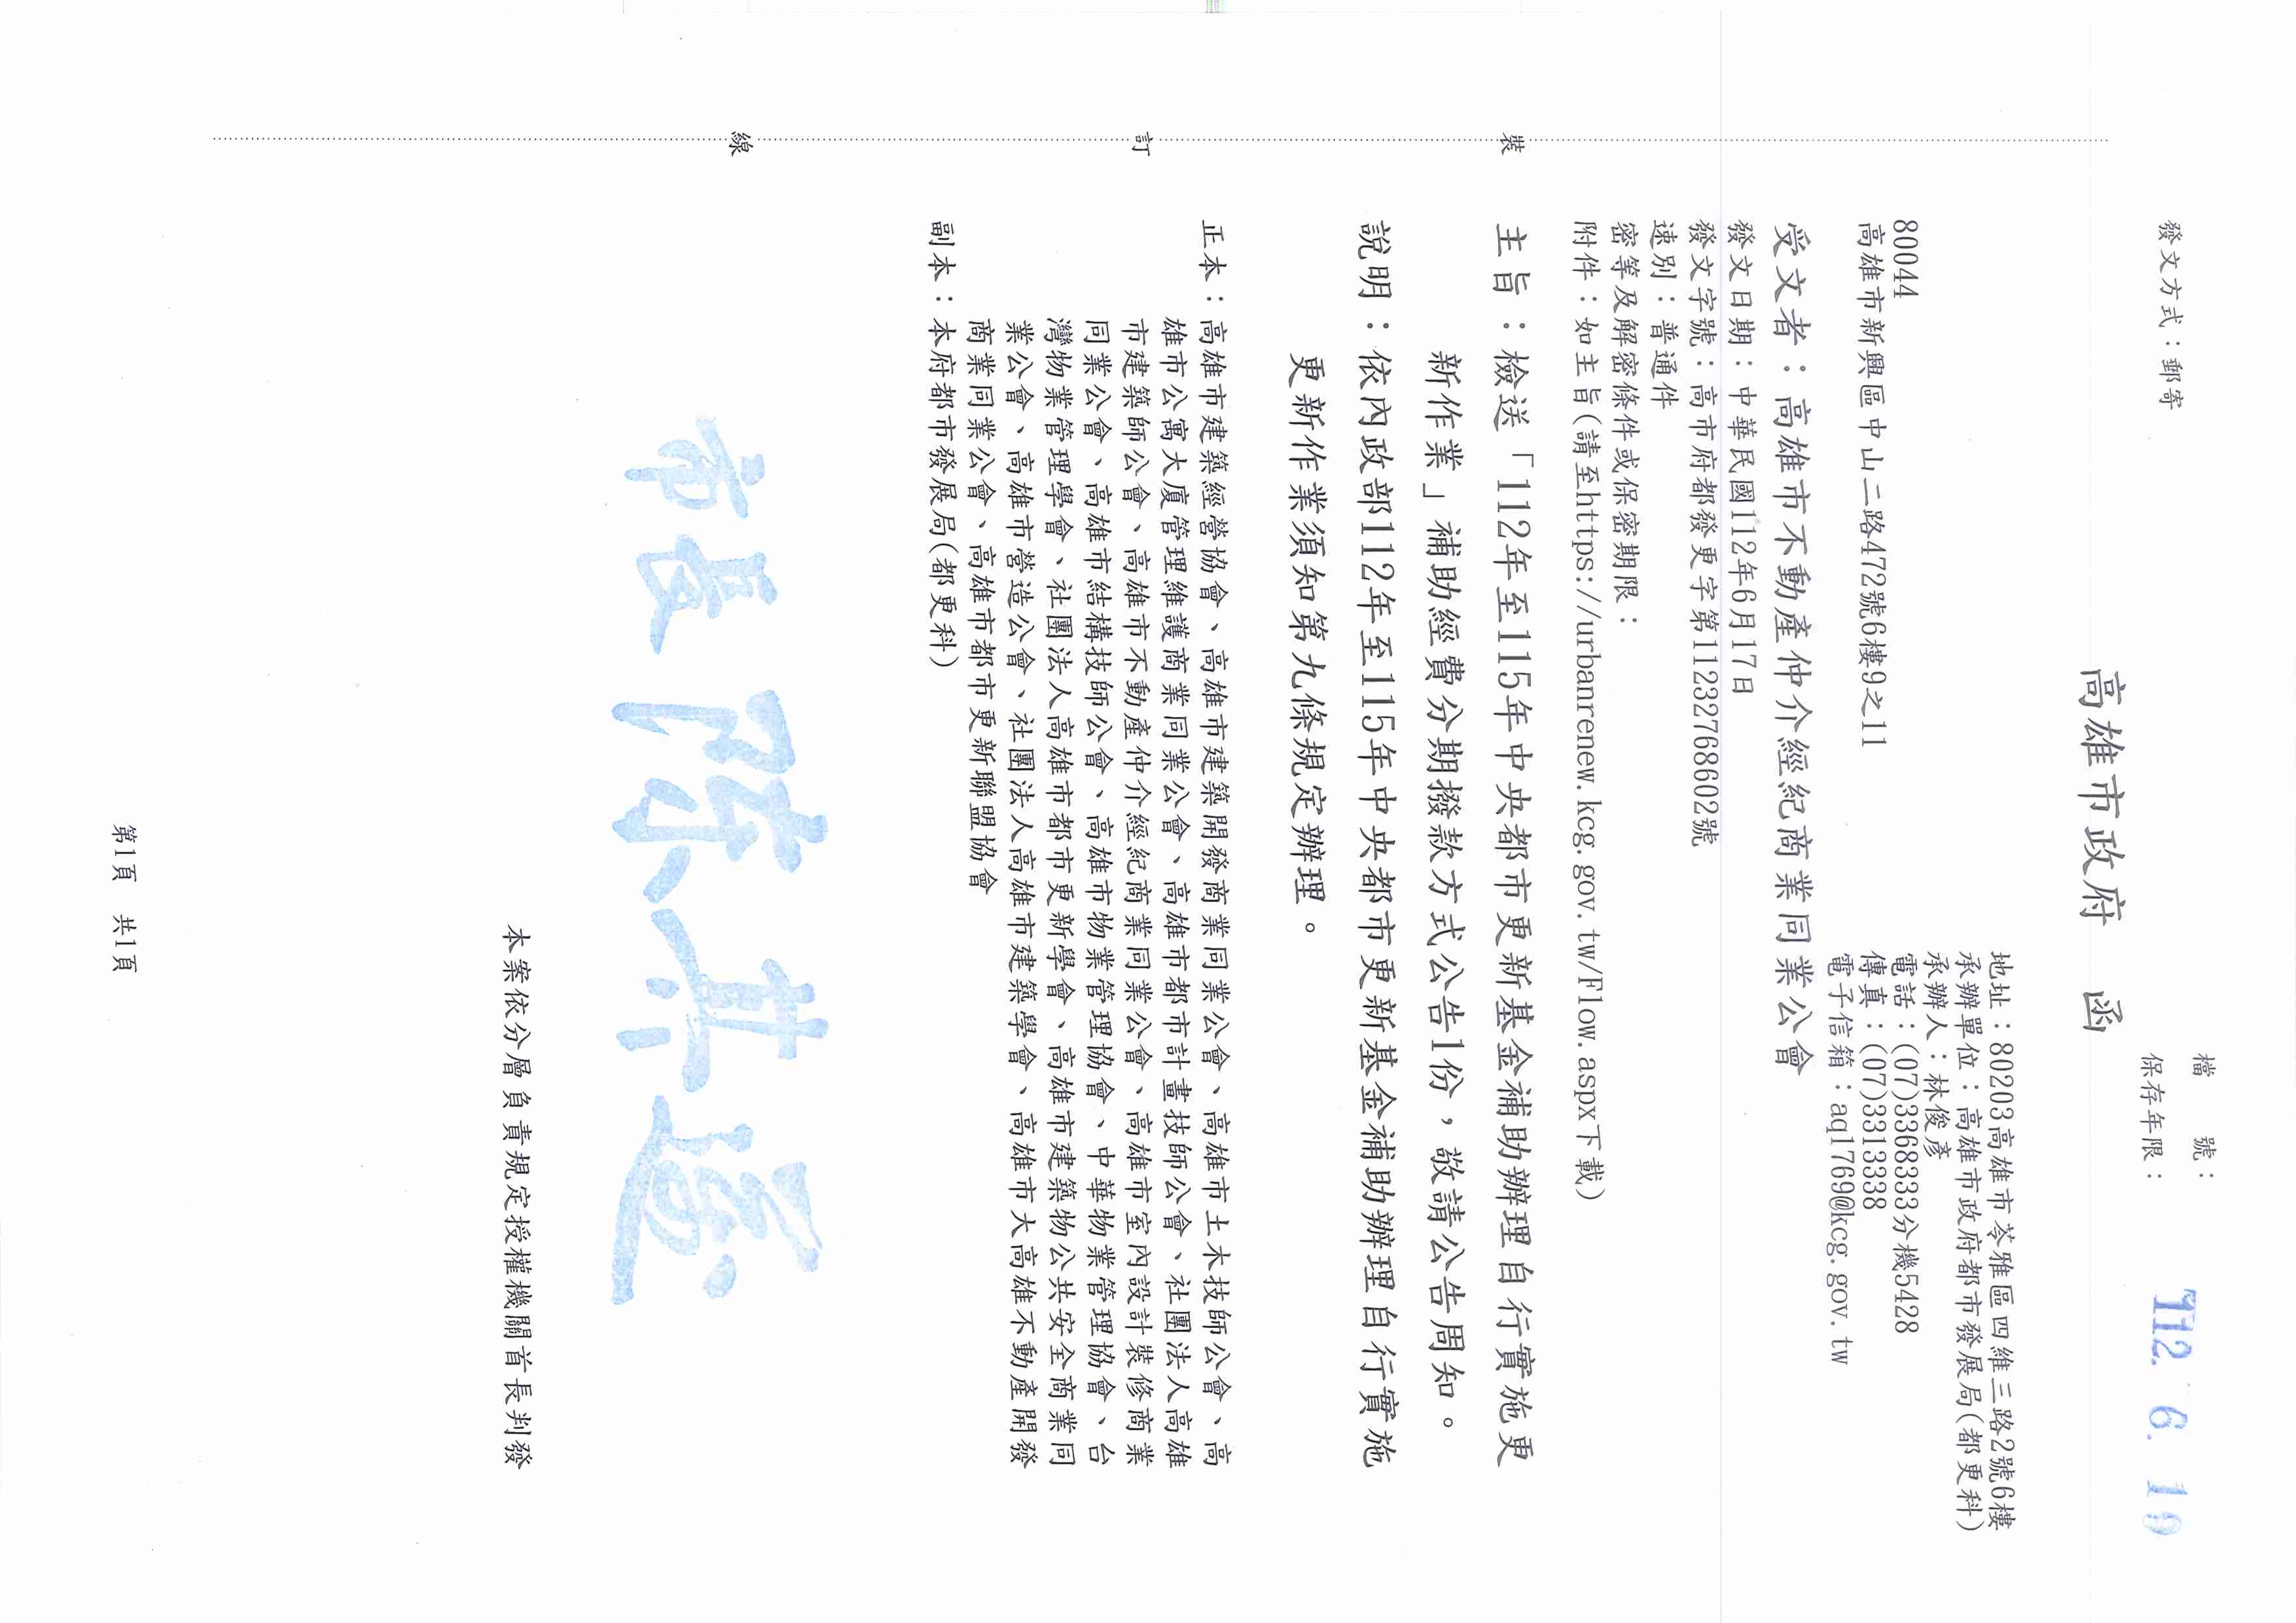 檔　　號：
保存年限：
112. 6. 19
發文方式：郵寄
高雄市政府　函
地址：80203高雄市苓雅區四維三路2號6樓
承辦單位：高雄市政府都市發展局(都更科)
承辦人：林俊彥
電話：(07)3368333分機5428
傳真：(07)3313338
電子信箱：aq1769@kcg.gov.tw
80044
高雄市新興區中山二路472號6樓9之11
受文者：高雄市不動產仲介經紀商業同業公會
發文日期：中華民國112年6月17日
發文字號：高市府都發更字第11232768602號
速別：普通件
密等及解密條件或保密期限：
附件：如主旨(請至https://urbanrenew.kcg.gov.tw/Flow.aspx下載)
主旨：檢送「112年至115年中央都市更新基金補助辦理自行實施更
新作業」補助經費分期撥款方式公告1份，敬請公告周知。
說明：依內政部112年至115年中央都市更新基金補助辦理自行實施
更新作業須知第九條規定辦理。
正本：高雄市建築經營協會、高雄市建築開發商業同業公會、高雄市土木技師公會、高
雄市公寓大廈管理維護商業同業公會、高雄市都市計畫技師公會、社團法人高雄
市建築師公會、高雄市不動產仲介經紀商業同業公會、高雄市室內設計裝修商業
同業公會、高雄市結構技師公會、高雄市物業管理協會、中華物業管理協會、台
灣物業管理學會、社團法人高雄市都市更新學會、高雄市建築物公共安全商業同
業公會、高雄市營造公會、社團法人高雄市建築學會、高雄市大高雄不動產開發
商業同業公會、高雄市都市更新聯盟協會
副本：本府都市發展局(都更科)
市長 陳其邁
本案依分層負責規定授權機關首長判發
裝
訂
線
第1頁　共1頁